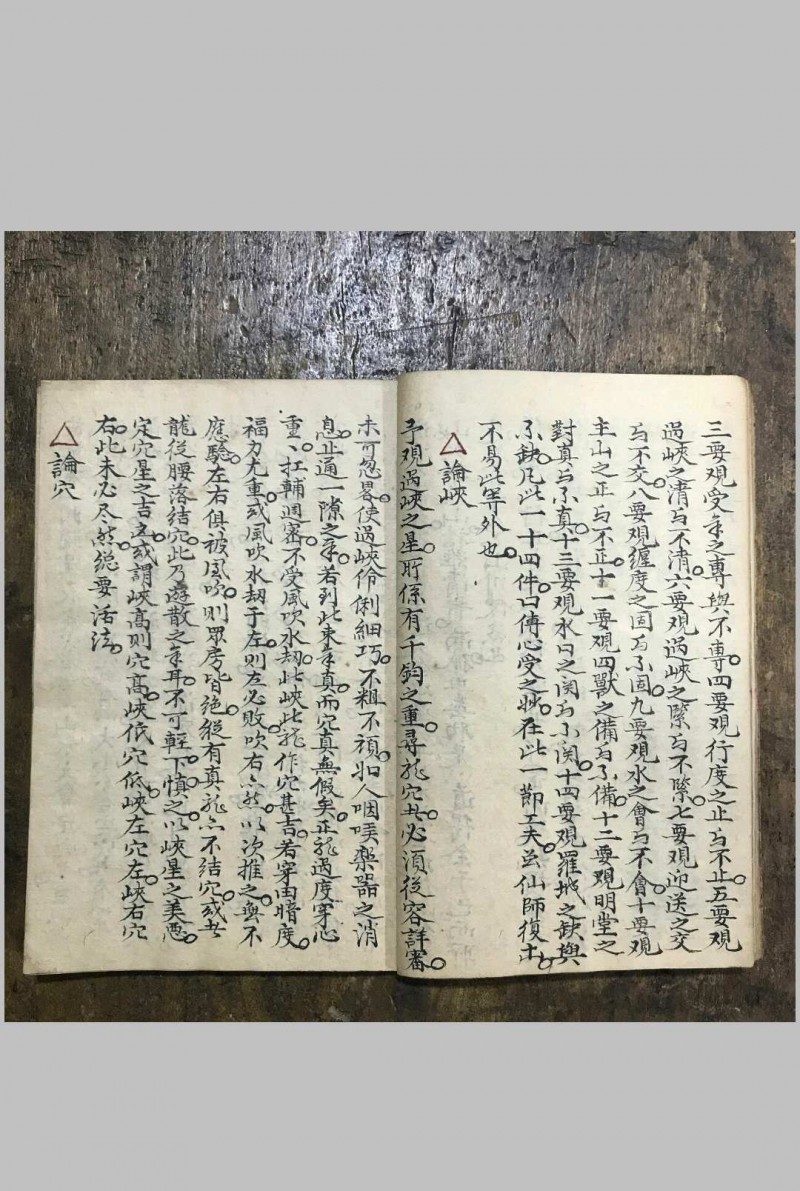 三要观受氣之專與不專四要观行度之止与不止五要观
過峽之清与不清六要观過峽之緊与不緊七要观迎送之交
与不交八要观纏度之固与不固九要观水之會与不會十要观
主山之正与不正十一要观四獸之備与不備十二要观明堂之
對真与不真十三要观水口之関与不関十四要观羅城之缺與
不缺凡此一十四件口傳心受之妙在此一節工夫仙師復生
不易此等外也
△論峽
予观過峽之星所係有千鈞之重尋龍穴者必須從容詳審
未可忽畧使過峽伶俐細巧不粗不頑如人咽喉樂器之消
息止通一隙之氣若到此束氣真而穴真無假矣正龍過度穿心
重重扛輔週密不受風吹水刼此峽此龍作穴甚吉若穿由暗度
福力尤重或風吹水刼于左則左必敗吹右亦然以次推之無不
應驗左右俱被風吹則眾房皆絕縱有真龍亦不結穴或者
龍從腰落結穴此乃遊散之氣耳不可輕下慎之以峽星之美惡
定穴星之吉凶或謂峽髙則穴髙峽低穴低峽左穴左峽右穴
右此未必尽然總要活法
△論穴